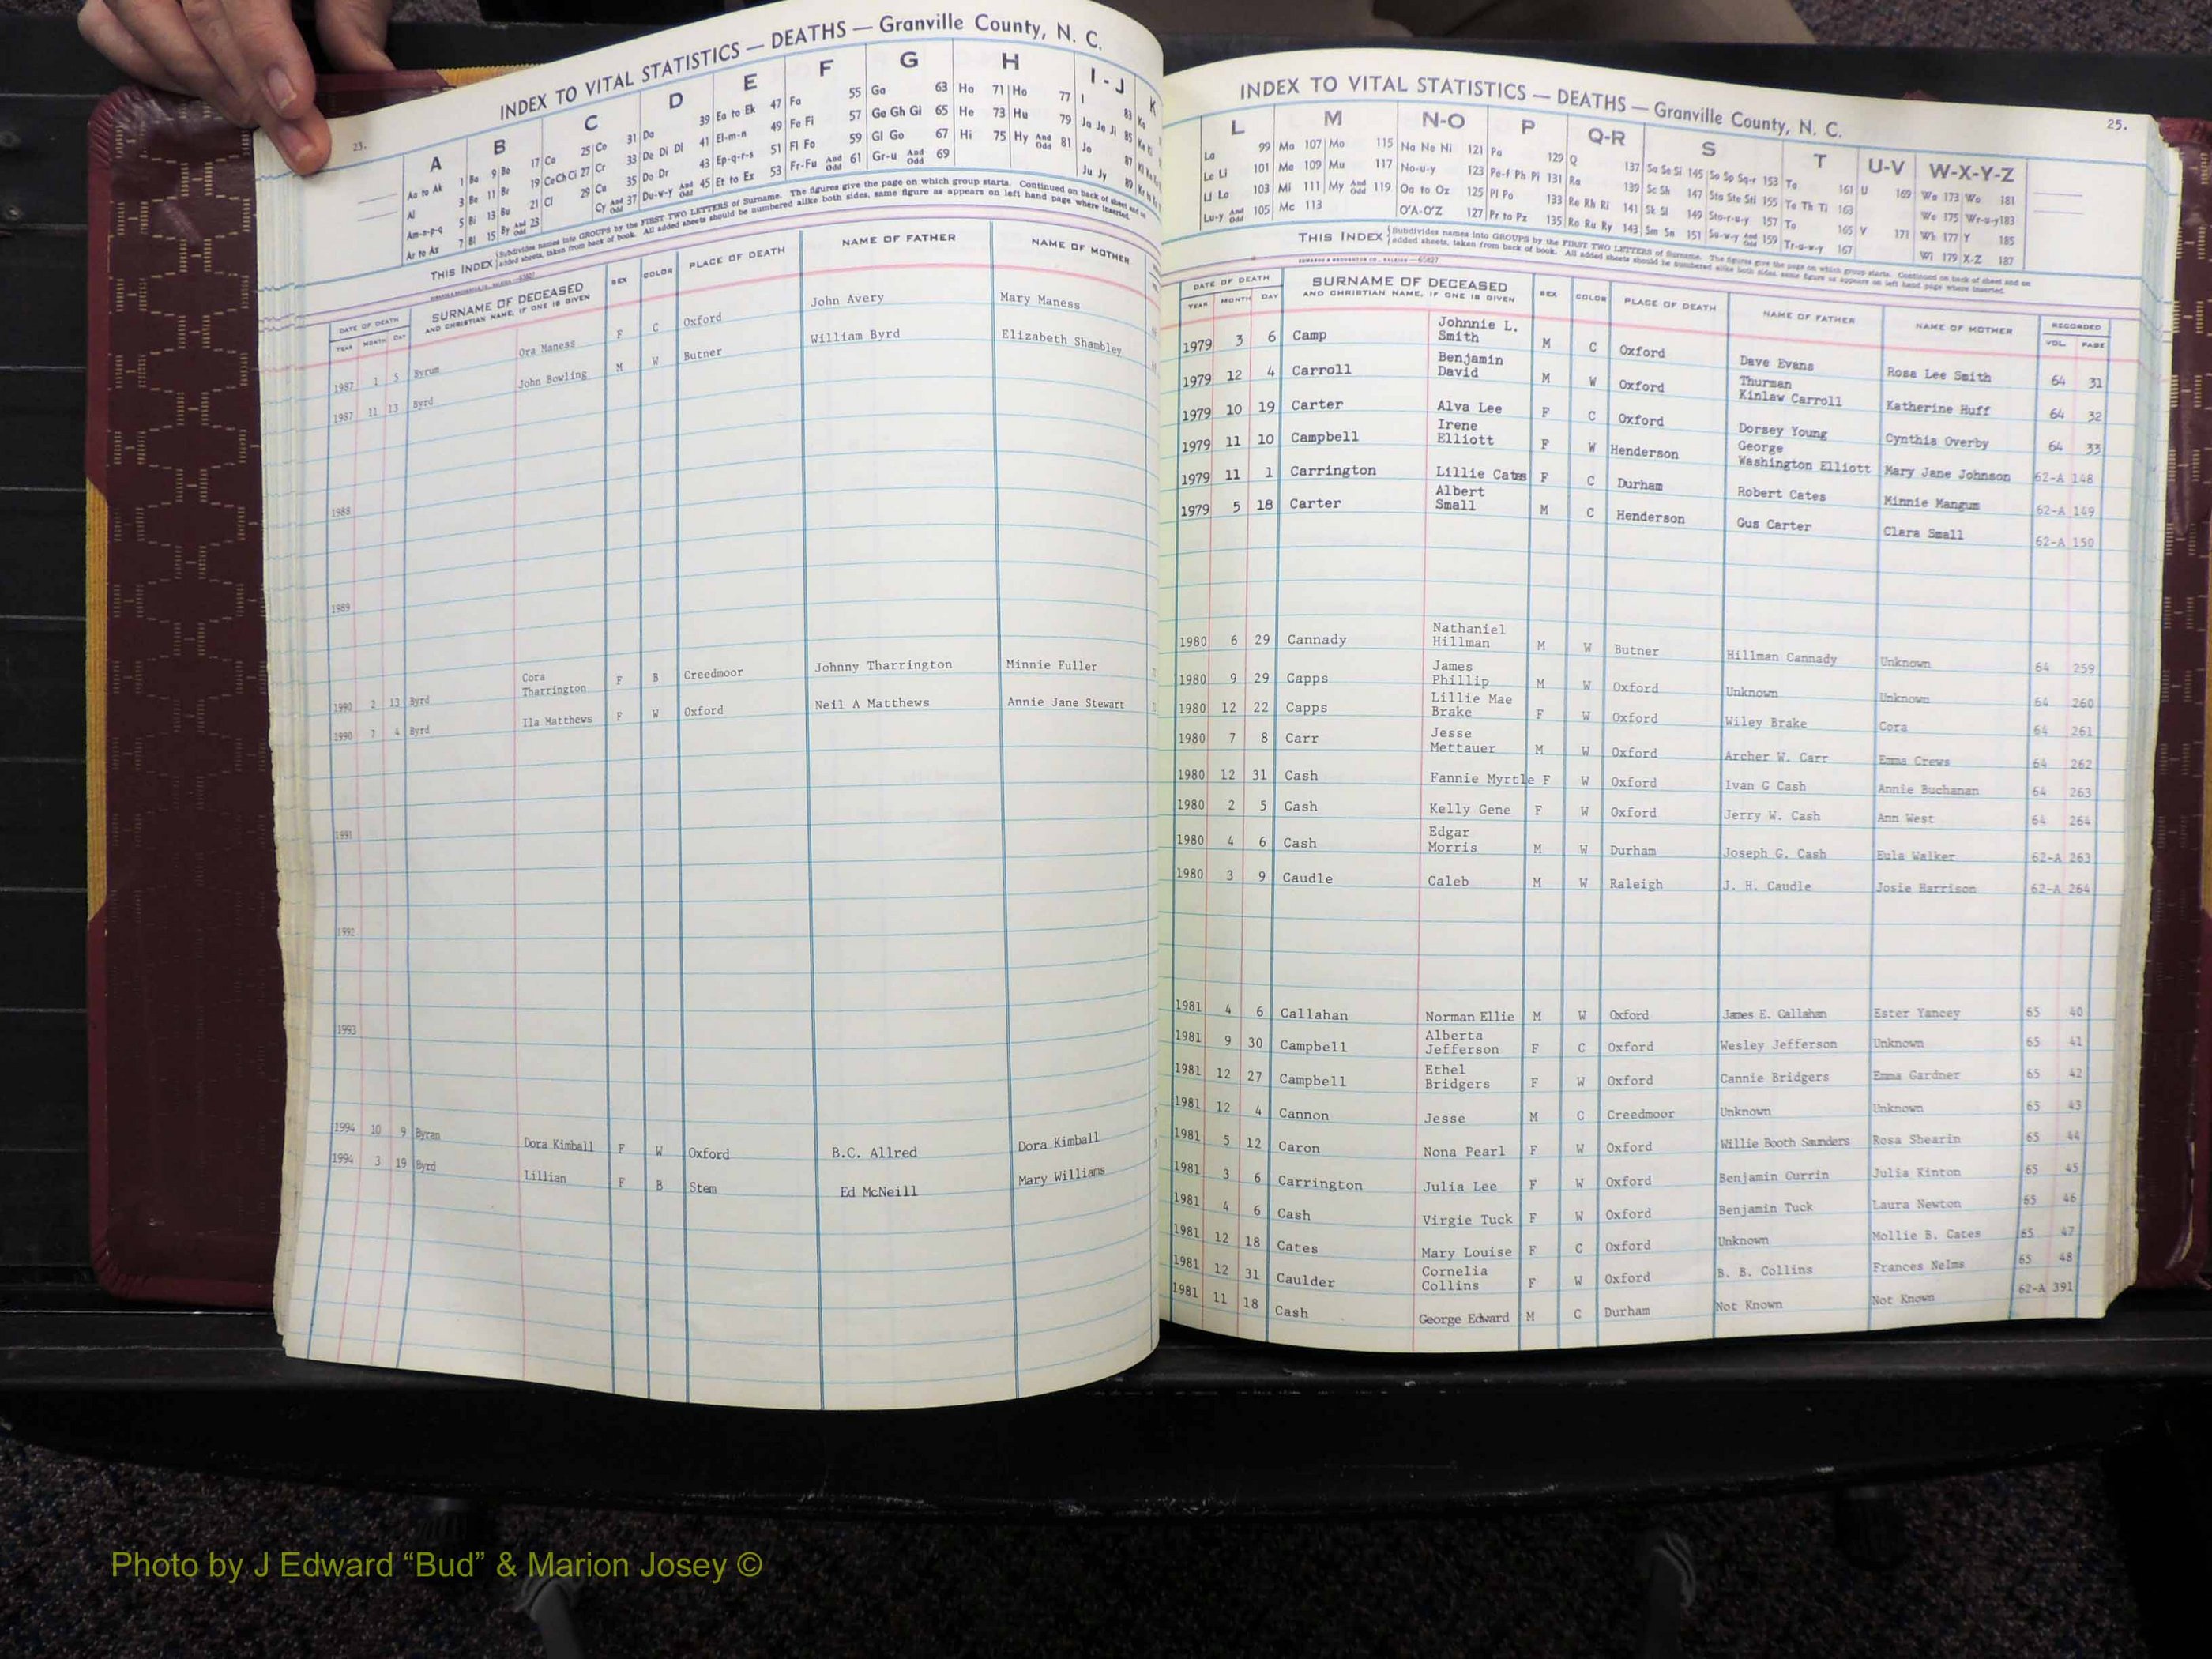 23.
INDEX TO VITAL STATISTICS — DEATHS — Granville County, N. C.
A B C D E F G H I - J K
Aa to Ak 1 Ba 9 Bo 17 Ca 25 Co 31 Da 39 Ea to Ek 47 Fa 55 Ga 63 Ha 71 Ho 77 I 83 Ka
Al 3 Be 11 Br 19 Ce Ch Ci 27 Cr 33 De Di Dl 41 El-m-n 49 Fe Fi 57 Ge Gh Gi 65 He 73 Hu 79 Ja Je Ji 85
Am-n-p-q 5 Bi 13 Bu 21 Cl 29 Cu 35 Do Dr 43 Ep-q-r-s 51 Fl Fo 59 Gl Go 67 Hi 75 Hy And Odd 81 Jo 87
Ar to Az 7 Bl 15 By And Odd 23 Cy And Odd 37 Du-w-y And Odd 45 Et to Ez 53 Fr-Fu And Odd 61 Gr-u And Odd 69 Ju Jy 89
THIS INDEX Subdivides names into GROUPS by the FIRST TWO LETTERS of Surname. The figures give the page on which group starts. Continued on back of sheet and on
added sheets, taken from back of book. All added sheets should be numbered alike both sides, same figure as appears on left hand page where inserted.
DATE OF DEATH SURNAME OF DECEASED SEX COLOR PLACE OF DEATH NAME OF FATHER NAME OF MOTHER
YEAR MONTH DAY AND CHRISTIAN NAME, IF ONE IS GIVEN
1987 1 5 Byrum Ora Maness F C Oxford John Avery Mary Maness
1987 11 13 Byrd John Bowling M W Butner William Byrd Elizabeth Shambley
1988
1989
1990 2 13 Byrd Cora Tharrington F B Creedmoor Johnny Tharrington Minnie Fuller
1990 7 4 Byrd Ila Matthews F W Oxford Neil A Matthews Annie Jane Stewart
1991
1992
1993
1994 10 9 Byran Dora Kimball F W Oxford B.C. Allred Dora Kimball
1994 3 19 Byrd Lillian F B Stem Ed McNeill Mary Williams
25.
INDEX TO VITAL STATISTICS — DEATHS — Granville County, N. C.
L M N-O P Q-R S T U-V W-X-Y-Z
La 99 Ma 107 Mo 115 Na Ne Ni 121 Pa 129 Q 137 Sa Se Si 145 So Sp Sq-r 153 Ta 161 U 169 Wa 173 Wo 181
Le Li 101 Me 109 Mu 117 No-u-y 123 Pe-f Ph Pi 131 Ra 139 Sc Sh 147 Sta Ste Sti 155 Te Th Ti 163 We 175 Wr-u-y 183
Ll Lo 103 Mi 111 My And Odd 119 Oa to Oz 125 Pl Po 133 Re Rh Ri 141 Sk Sl 149 Sto-r-u-y 157 To 165 V 171 Wh 177 Y 185
Lu-y And Odd 105 Mc 113 O'A-O'Z 127 Pr to Pz 135 Ro Ru Ry 143 Sm Sn 151 Su-w-y And Odd 159 Tr-u-w-y 167 Wi 179 X-Z 187
THIS INDEX Subdivides names into GROUPS by the FIRST TWO LETTERS of Surname. The figures give the page on which group starts. Continued on back of sheet and on
added sheets, taken from back of book. All added sheets should be numbered alike both sides, same figure as appears on left hand page where inserted.
DATE OF DEATH SURNAME OF DECEASED SEX COLOR PLACE OF DEATH NAME OF FATHER NAME OF MOTHER RECORDED
YEAR MONTH DAY AND CHRISTIAN NAME, IF ONE IS GIVEN VOL. PAGE
1979 3 6 Camp Johnnie L. Smith M C Oxford Dave Evans Rosa Lee Smith 64 31
1979 12 4 Carroll Benjamin David M W Oxford Thurman Kinlaw Carroll Katherine Huff 64 32
1979 10 19 Carter Alva Lee F C Oxford Dorsey Young Cynthia Overby 64 33
1979 11 10 Campbell Irene Elliott F W Henderson George Washington Elliott Mary Jane Johnson 62-A 148
1979 11 1 Carrington Lillie Cates F C Durham Robert Cates Minnie Mangum 62-A 149
1979 5 18 Carter Albert Small M C Henderson Gus Carter Clara Small 62-A 150
1980 6 29 Cannady Nathaniel Hillman M W Butner Hillman Cannady Unknown 64 259
1980 9 29 Capps James Phillip M W Oxford Unknown Unknown 64 260
1980 12 22 Capps Lillie Mae Brake F W Oxford Wiley Brake Cora 64 261
1980 7 8 Carr Jesse Mettauer M W Oxford Archer W. Carr Emma Crews 64 262
1980 12 31 Cash Fannie Myrtle F W Oxford Ivan G Cash Annie Buchanan 64 263
1980 2 5 Cash Kelly Gene F W Oxford Jerry W. Cash Ann West 64 264
1980 4 6 Cash Edgar Morris M W Durham Joseph G. Cash Eula Walker 62-A 263
1980 3 9 Caudle Caleb M W Raleigh J. H. Caudle Josie Harrison 62-A 264
1981 4 6 Callahan Norman Ellie M W Oxford James E. Callahan Ester Yancey 65 40
1981 9 30 Campbell Alberta Jefferson F C Oxford Wesley Jefferson Unknown 65 41
1981 12 27 Campbell Ethel Bridgers F W Oxford Cannie Bridgers Emma Gardner 65 42
1981 12 4 Cannon Jesse M C Creedmoor Unknown Unknown 65 43
1981 5 12 Caron Nona Pearl F W Oxford Willie Booth Saunders Rosa Shearin 65 44
1981 3 6 Carrington Julia Lee F W Oxford Benjamin Currin Julia Kinton 65 45
1981 4 6 Cash Virgie Tuck F W Oxford Benjamin Tuck Laura Newton 65 46
1981 12 18 Cates Mary Louise F C Oxford Unknown Mollie B. Cates 65 47
1981 12 31 Caulder Cornelia Collins F W Oxford B. B. Collins Frances Nelms 65 48
1981 11 18 Cash George Edward M C Durham Not Known Not Known 62-A 391
Photo by J Edward “Bud” & Marion Josey ©